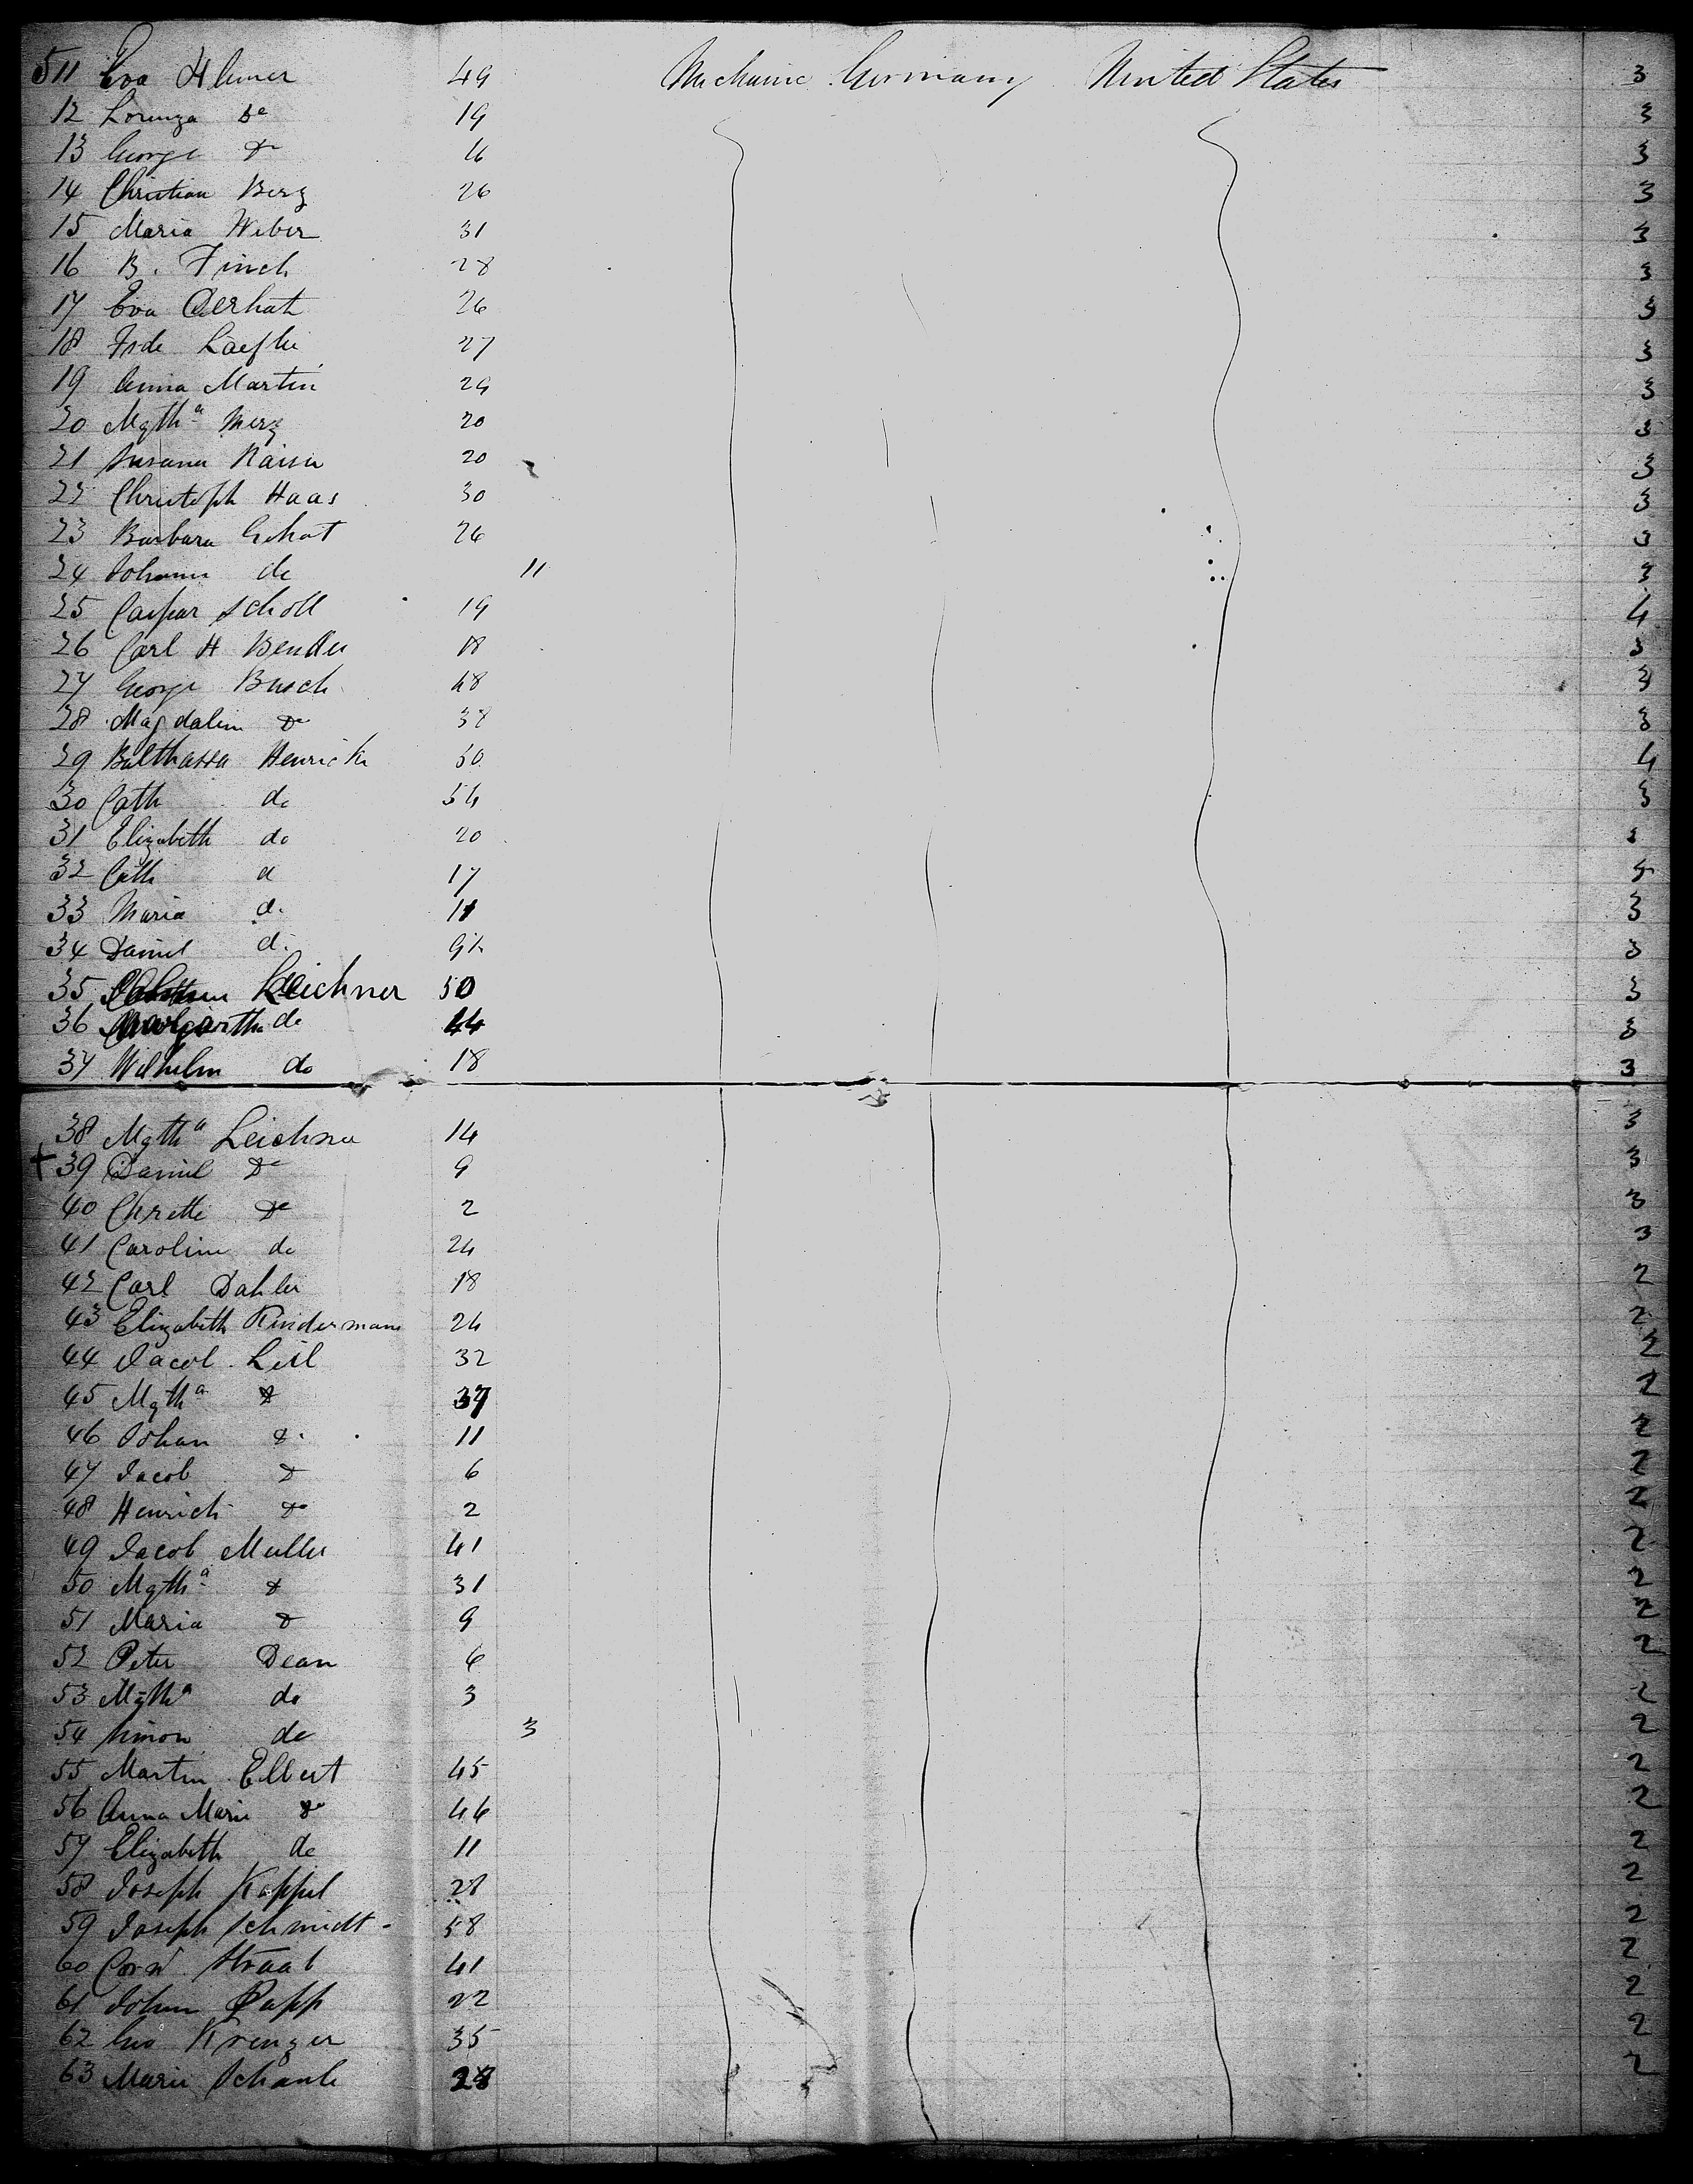 511 Eva Hemer 49 Mechanic Germany United States 3
12 Lorenza Do 19 3
13 George Do 16 3
14 Christian Berg 26 3
15 Maria Weber 31 3
16 B. Finch 28 3
17 Eva Oerhat 26 3
18 Frde Laeflu 27 3
19 Anna Martin 24 3
20 Mgtha Merz 20 3
21 Susana Kaiser 20 3
22 Christoph Haas 30 3
23 Barbara Gehat 26 3
24 Johann do 11 3
25 Caspar Scholl 19 4
26 Carl H Bender 18 3
27 George Busch 48 3
28 Magdalen Do 38 3
29 Balthassa Henricks 50 4
30 Cath do 54 3
31 Elizabeth do 20 3
32 Cath d 17
33 Maria d. 11 3
34 Daniel d. 9½ 3
35 Leichner 50 3
36 Margartha do 44 3
37 Wilhelm do 18 3
38 Mgtha Leichner 14 3
+ 39 Daniel Do 9 3
40 Chrette Do 2 3
41 Caroline do 24 3
42 Carl Dahler 18 2
43 Elizabeth Kindermann 24 2
44 Jacob Leil 32 2
45 Mgtha Do 37 2
46 Johan Do 11 2
47 Jacob Do 6 2
48 Henrich Do 2 2
49 Jacob Muller 41 2
50 Mgtha Do 31 2
51 Maria Do 9 2
52 Peter Dean 6 2
53 Mgtha do 3 2
54 Simon do 3 2
55 Martin Elbert 45 2
56 Anna Marie Do 46 2
57 Elizabeth do 11 2
58 Joseph Kappel 28 2
59 Joseph Schmidt 58 2
60 Cord Straab 41 2
61 Johan Papp 22 2
62 Geo Krenzer 35 2
63 Marie Schanle 28 2